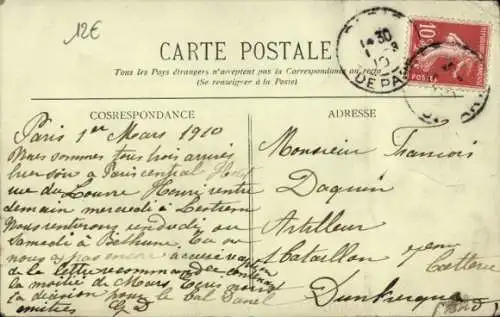 12€
CARTE POSTALE
Tous les Pays étrangers n'acceptent pas la Correspondance au recto
(Se renseigner à la Poste)
CORRESPONDANCE
ADRESSE
10
POSTES
DE PA
Paris 1er Mars 1910
Nous sommes tous trois arrivés
hier soir à Paris central Hotel
rue du Louvre Henri rentre
demain mercredi à Lestrem
Nous rentrerons vendredi ou
Samedi à Bethune. Tu ne
nous a pas encore accusé
de la lettre recommandée
la moitié de Mars
la division pour le
amitiés
Monsieur François
Daquin
Artilleur
Bataillon
Batterie
Dunkerque
(Nord)